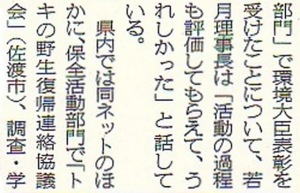 部門」で環境大臣表彰を
受けたことについて、若
月理事長は「活動の過程
も評価してもらえて、う
れしかった」と話して
いる。
県内では同ネットのほ
かに、保全活動部門で「ト
キの野生復帰連絡協議
会」（佐渡市）、調査・学